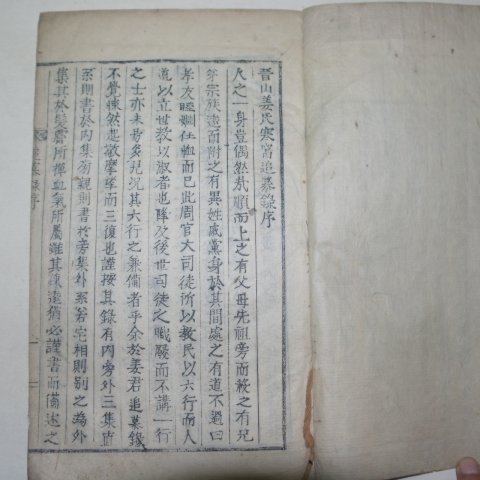 晋山姜氏寒窩追慕錄序
人之一身豈偶然哉順而上之有父母先祖旁而殺之有兄
弟宗族遠而附之有異姓戚黨身於其間處之有道不過曰
孝友睦婣任恤而已此周官大司徒所以教民以六行而人
道以立世教以淑者也降及後世司徒之職廢而不講一行
之士亦未易多見況其六行之兼備者乎余於姜君追慕錄
不覺悚然起敬摩挲而三復也謹按其錄有內旁外三集直
系則書於內集旁親則書於旁集外系若宅相則別之為外
集其於髮膚所禪血氣所屬雖其疎遠猶必謹書而備述之
追慕錄序